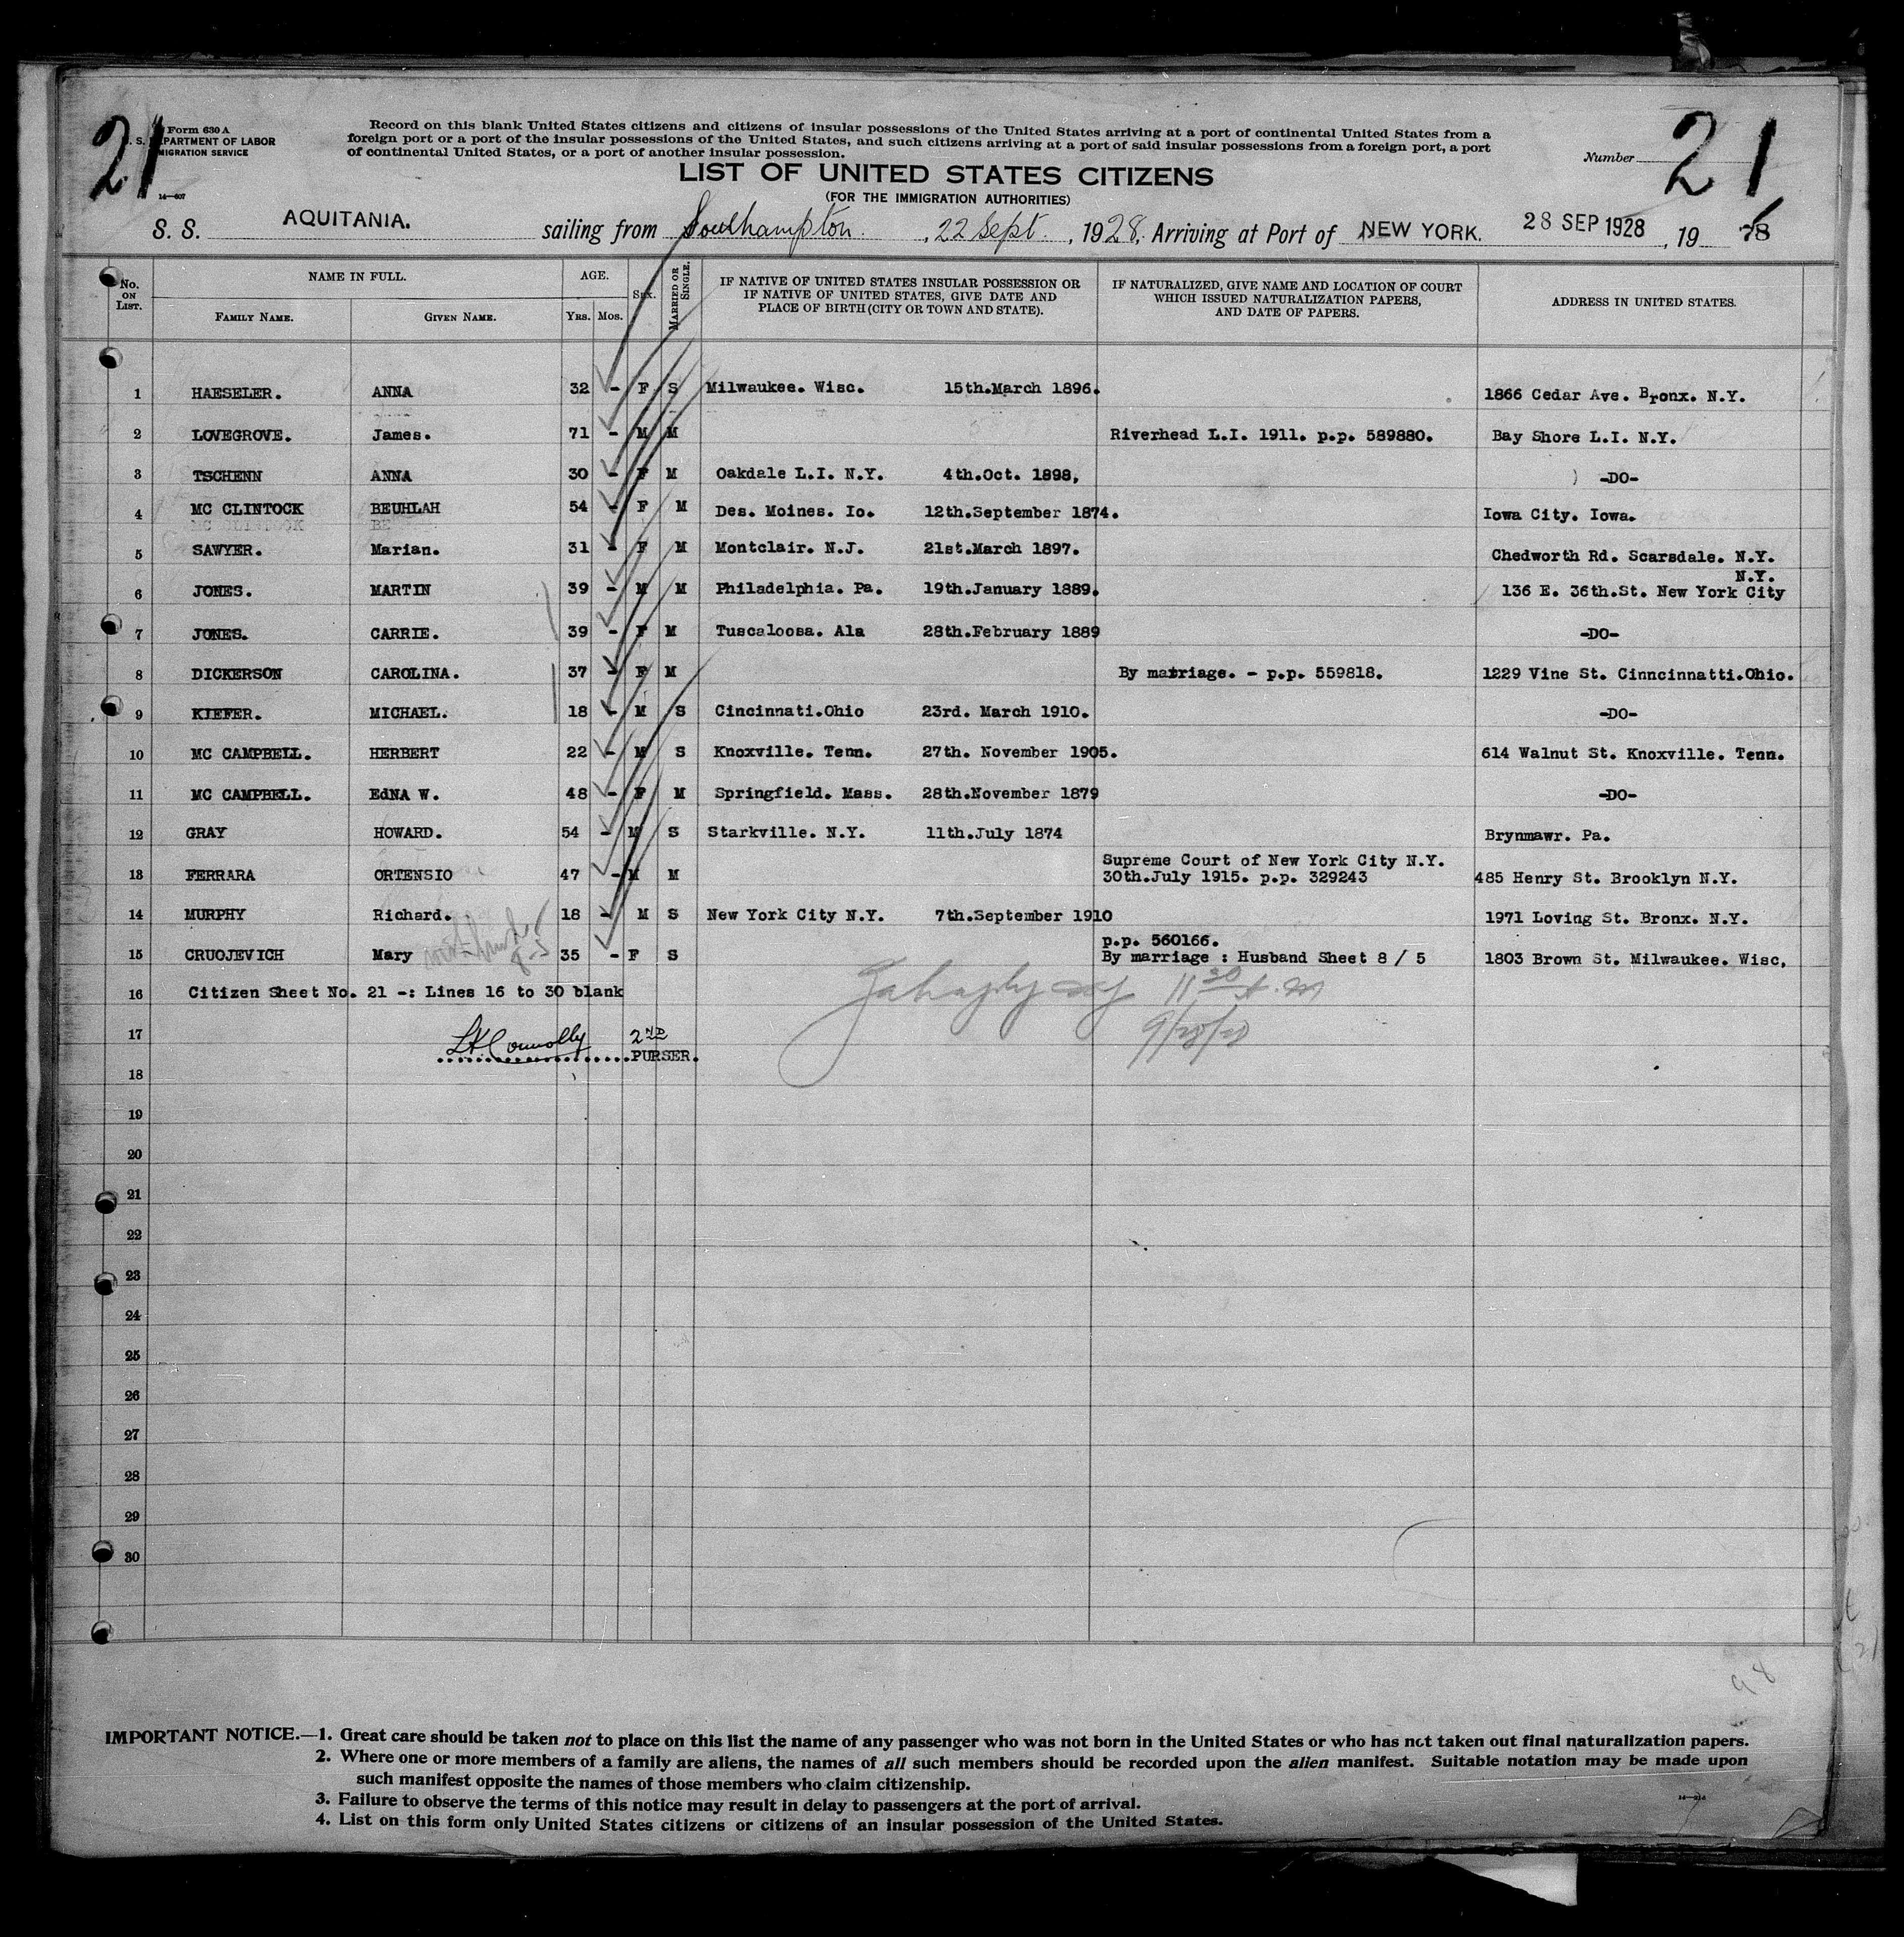 21
Form 630 A
U. S. DEPARTMENT OF LABOR
IMMIGRATION SERVICE
14—607
Record on this blank United States citizens and citizens of insular possessions of the United States arriving at a port of continental United States from a
foreign port or a port of the insular possessions of the United States, and such citizens arriving at a port of said insular possessions from a foreign port, a port
of continental United States, or a port of another insular possession.
Number 21
LIST OF UNITED STATES CITIZENS
(FOR THE IMMIGRATION AUTHORITIES)
S. S. AQUITANIA. sailing from Southampton. , 22 Sept. , 1928, Arriving at Port of NEW YORK. 28 SEP 1928 , 19
No. ON LIST. NAME IN FULL. AGE. SEX. MARRIED OR SINGLE. IF NATIVE OF UNITED STATES INSULAR POSSESSION OR IF NATIVE OF UNITED STATES, GIVE DATE AND PLACE OF BIRTH (CITY OR TOWN AND STATE). IF NATURALIZED, GIVE NAME AND LOCATION OF COURT WHICH ISSUED NATURALIZATION PAPERS, AND DATE OF PAPERS. ADDRESS IN UNITED STATES.
FAMILY NAME. GIVEN NAME. YRS. MOS.
1 HAESELER. ANNA 32 - F S Milwaukee. Wisc. 15th.March 1896. 1866 Cedar Ave. Bronx. N.Y.
2 LOVEGROVE. James. 71 - M M Riverhead L.I. 1911. p.p. 589880. Bay Shore L.I. N.Y.
3 TSCHENN ANNA 30 - F M Oakdale L.I. N.Y. 4th.Oct. 1898, -DO-
4 MC CLINTOCK BEUHLAH 54 - F M Des. Moines. Io. 12th.September 1874. Iowa City. Iowa.
5 SAWYER. Marian. 31 - F M Montclair. N.J. 21st.March 1897. Chedworth Rd. Scarsdale. N.Y.
N.Y.
6 JONES. MARTIN 39 - M M Philadelphia. Pa. 19th.January 1889. 136 E. 36th.St. New York City
7 JONES. CARRIE. 39 - F M Tuscaloosa. Ala 28th.February 1889 -DO-
8 DICKERSON CAROLINA. 37 - F M By marriage. - p.p. 559818. 1229 Vine St. Cinncinnatti.Ohio.
9 KIEFER. MICHAEL. 18 - M S Cincinnati.Ohio 23rd. March 1910. -DO-
10 MC CAMPBELL. HERBERT 22 - M S Knoxville. Tenn. 27th. November 1905. 614 Walnut St. Knoxville. Tenn.
11 MC CAMPBELL. EdNA W. 48 - F M Springfield. Mass. 28th.November 1879 -DO-
12 GRAY HOWARD. 54 - M S Starkville. N.Y. 11th.July 1874 Brynmawr. Pa.
Supreme Court of New York City N.Y.
13 FERRARA ORTENSIO 47 - M M 30th.July 1915. p.p. 329243 485 Henry St. Brooklyn N.Y.
14 MURPHY Richard. 18 - M S New York City N.Y. 7th.September 1910 1971 Loving St. Bronx. N.Y.
p.p. 560166.
15 CRUOJEVICH Mary 35 - F S By marriage : Husband Sheet 8 / 5 1803 Brown St. Milwaukee. Wisc,
16 Citizen Sheet No. 21 -: Lines 16 to 30 blank
11 30 A.M
9/28/28
17 2ND
PURSER.
18
19
20
21
22
23
24
25
26
27
28
29
30
98
IMPORTANT NOTICE.—1. Great care should be taken not to place on this list the name of any passenger who was not born in the United States or who has not taken out final naturalization papers.
2. Where one or more members of a family are aliens, the names of all such members should be recorded upon the alien manifest. Suitable notation may be made upon
such manifest opposite the names of those members who claim citizenship.
3. Failure to observe the terms of this notice may result in delay to passengers at the port of arrival.
4. List on this form only United States citizens or citizens of an insular possession of the United States.